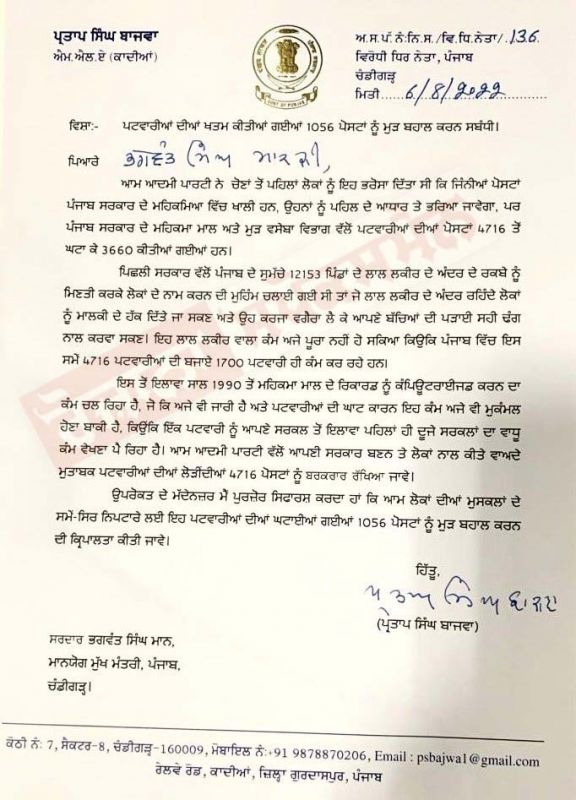 ਪ੍ਰਤਾਪ ਸਿੰਘ ਬਾਜਵਾ
ਐਮ.ਐਲ.ਏ (ਕਾਦੀਆਂ)
ਅ.ਸ.ਪੱ.ਨੰ:ਨਿ.ਸ./ਵਿ.ਧਿ.ਨੇਤਾ/.136
ਵਿਰੋਧੀ ਧਿਰ ਨੇਤਾ, ਪੰਜਾਬ
ਚੰਡੀਗੜ੍ਹ
ਮਿਤੀ .....6/8/2022
ਵਿਸ਼ਾ:- ਪਟਵਾਰੀਆਂ ਦੀਆਂ ਖਤਮ ਕੀਤੀਆਂ ਗਈਆਂ 1056 ਪੋਸਟਾਂ ਨੂੰ ਮੁੜ ਬਹਾਲ ਕਰਨ ਸਬੰਧੀ।
ਪਿਆਰੇ ਭਗਵੰਤ ਸਿੰਘ ਮਾਨ ਜੀ,
ਆਮ ਆਦਮੀ ਪਾਰਟੀ ਨੇ ਚੋਣਾਂ ਤੋਂ ਪਹਿਲਾਂ ਲੋਕਾਂ ਨੂੰ ਇਹ ਭਰੋਸਾ ਦਿੱਤਾ ਸੀ ਕਿ ਜਿੰਨੀਆਂ ਪੋਸਟਾਂ
ਪੰਜਾਬ ਸਰਕਾਰ ਦੇ ਮਹਿਕਮਿਆ ਵਿੱਚ ਖਾਲੀ ਹਨ, ਉਹਨਾਂ ਨੂੰ ਪਹਿਲ ਦੇ ਆਧਾਰ ਤੇ ਭਰਿਆ ਜਾਵੇਗਾ, ਪਰ
ਪੰਜਾਬ ਸਰਕਾਰ ਦੇ ਮਹਿਕਮਾ ਮਾਲ ਅਤੇ ਮੁੜ ਵਸੇਬਾ ਵਿਭਾਗ ਵੱਲੋਂ ਪਟਵਾਰੀਆਂ ਦੀਆਂ ਪੋਸਟਾਂ 4716 ਤੋਂ
ਘਟਾ ਕੇ 3660 ਕੀਤੀਆਂ ਗਈਆਂ ਹਨ।
ਪਿਛਲੀ ਸਰਕਾਰ ਵੱਲੋਂ ਪੰਜਾਬ ਦੇ ਸੁਮੱਚੇ 12153 ਪਿੰਡਾਂ ਦੇ ਲਾਲ ਲਕੀਰ ਦੇ ਅੰਦਰ ਦੇ ਰਕਬੇ ਨੂੰ
ਮਿਣਤੀ ਕਰਕੇ ਲੋਕਾਂ ਦੇ ਨਾਮ ਕਰਨ ਦੀ ਮੁਹਿੰਮ ਚਲਾਈ ਗਈ ਸੀ ਤਾਂ ਜੋ ਲਾਲ ਲਕੀਰ ਦੇ ਅੰਦਰ ਰਹਿੰਦੇ ਲੋਕਾਂ
ਨੂੰ ਮਾਲਕੀ ਦੇ ਹੱਕ ਦਿੱਤੇ ਜਾ ਸਕਣ ਅਤੇ ਉਹ ਕਰਜਾ ਵਗੈਰਾ ਲੈ ਕੇ ਆਪਣੇ ਬੱਚਿਆਂ ਦੀ ਪੜਾਈ ਸਹੀ ਢੰਗ
ਨਾਲ ਕਰਵਾ ਸਕਣ। ਇਹ ਲਾਲ ਲਕੀਰ ਵਾਲਾ ਕੰਮ ਅਜੇ ਪੂਰਾ ਨਹੀਂ ਹੋ ਸਕਿਆ ਕਿਉਕਿ ਪੰਜਾਬ ਵਿੱਚ ਇਸ
ਸਮੇਂ 4716 ਪਟਵਾਰੀਆਂ ਦੀ ਬਜਾਏ 1700 ਪਟਵਾਰੀ ਹੀ ਕੰਮ ਕਰ ਰਹੇ ਹਨ।
ਇਸ ਤੋਂ ਇਲਾਵਾ ਸਾਲ 1990 ਤੋਂ ਮਹਿਕਮਾ ਮਾਲ ਦੇ ਰਿਕਾਰਡ ਨੂੰ ਕੰਪਿਊਟਰਾਈਜਡ ਕਰਨ ਦਾ
ਕੰਮ ਚਲ ਰਿਹਾ ਹੈ, ਜੋ ਕਿ ਅਜੇ ਵੀ ਜਾਰੀ ਹੈ ਅਤੇ ਪਟਵਾਰੀਆਂ ਦੀ ਘਾਟ ਕਾਰਨ ਇਹ ਕੰਮ ਅਜੇ ਵੀ ਮੁਕੰਮਲ
ਹੋਣਾ ਬਾਕੀ ਹੈ, ਕਿਉਂਕਿ ਇੱਕ ਪਟਵਾਰੀ ਨੂੰ ਆਪਣੇ ਸਰਕਲ ਤੋਂ ਇਲਾਵਾ ਪਹਿਲਾਂ ਹੀ ਦੂਜੇ ਸਰਕਲਾਂ ਦਾ ਵਾਧੂ
ਕੰਮ ਵੇਖਣਾ ਪੈ ਰਿਹਾ ਹੈ। ਆਮ ਆਦਮੀ ਪਾਰਟੀ ਵੱਲੋਂ ਆਪਣੀ ਸਰਕਾਰ ਬਣਨ ਤੇ ਲੋਕਾਂ ਨਾਲ ਕੀਤੇ ਵਾਅਦੇ
ਮੁਤਾਬਕ ਪਟਵਾਰੀਆਂ ਦੀਆਂ ਲੋੜੀਂਦੀਆਂ 4716 ਪੋਸਟਾਂ ਨੂੰ ਬਰਕਰਾਰ ਰੱਖਿਆ ਜਾਵੇ।
ਉਪਰੋਕਤ ਦੇ ਮੱਦੇਨਜ਼ਰ ਮੈਂ ਪੁਰਜ਼ੋਰ ਸਿਫਾਰਸ਼ ਕਰਦਾ ਹਾਂ ਕਿ ਆਮ ਲੋਕਾਂ ਦੀਆਂ ਮੁਸਕਲਾਂ ਦੇ
ਸਮੇਂ-ਸਿਰ ਨਿਪਟਾਰੇ ਲਈ ਇਹ ਪਟਵਾਰੀਆਂ ਦੀਆਂ ਘਟਾਈਆਂ ਗਈਆਂ 1056 ਪੋਸਟਾਂ ਨੂੰ ਮੁੜ ਬਹਾਲ ਕਰਨ
ਦੀ ਕ੍ਰਿਪਾਲਤਾ ਕੀਤੀ ਜਾਵੇ।
ਹਿੱਤੂ,
ਪ੍ਰਤਾਪ ਸਿੰਘ ਬਾਜਵਾ
(ਪ੍ਰਤਾਪ ਸਿੰਘ ਬਾਜਵਾ)
ਸਰਦਾਰ ਭਗਵੰਤ ਸਿੰਘ ਮਾਨ,
ਮਾਨਯੋਗ ਮੁੱਖ ਮੰਤਰੀ, ਪੰਜਾਬ,
ਚੰਡੀਗੜ੍ਹ।
ਕੋਠੀ ਨੰ: 7, ਸੈਕਟਰ-8, ਚੰਡੀਗੜ੍ਹ-160009, ਮੋਬਾਇਲ ਨੰ:+91 9878870206, Email : psbajwa1@gmail.com
ਰੇਲਵੇ ਰੋਡ, ਕਾਦੀਆਂ, ਜ਼ਿਲ੍ਹਾ ਗੁਰਦਾਸਪੁਰ, ਪੰਜਾਬ